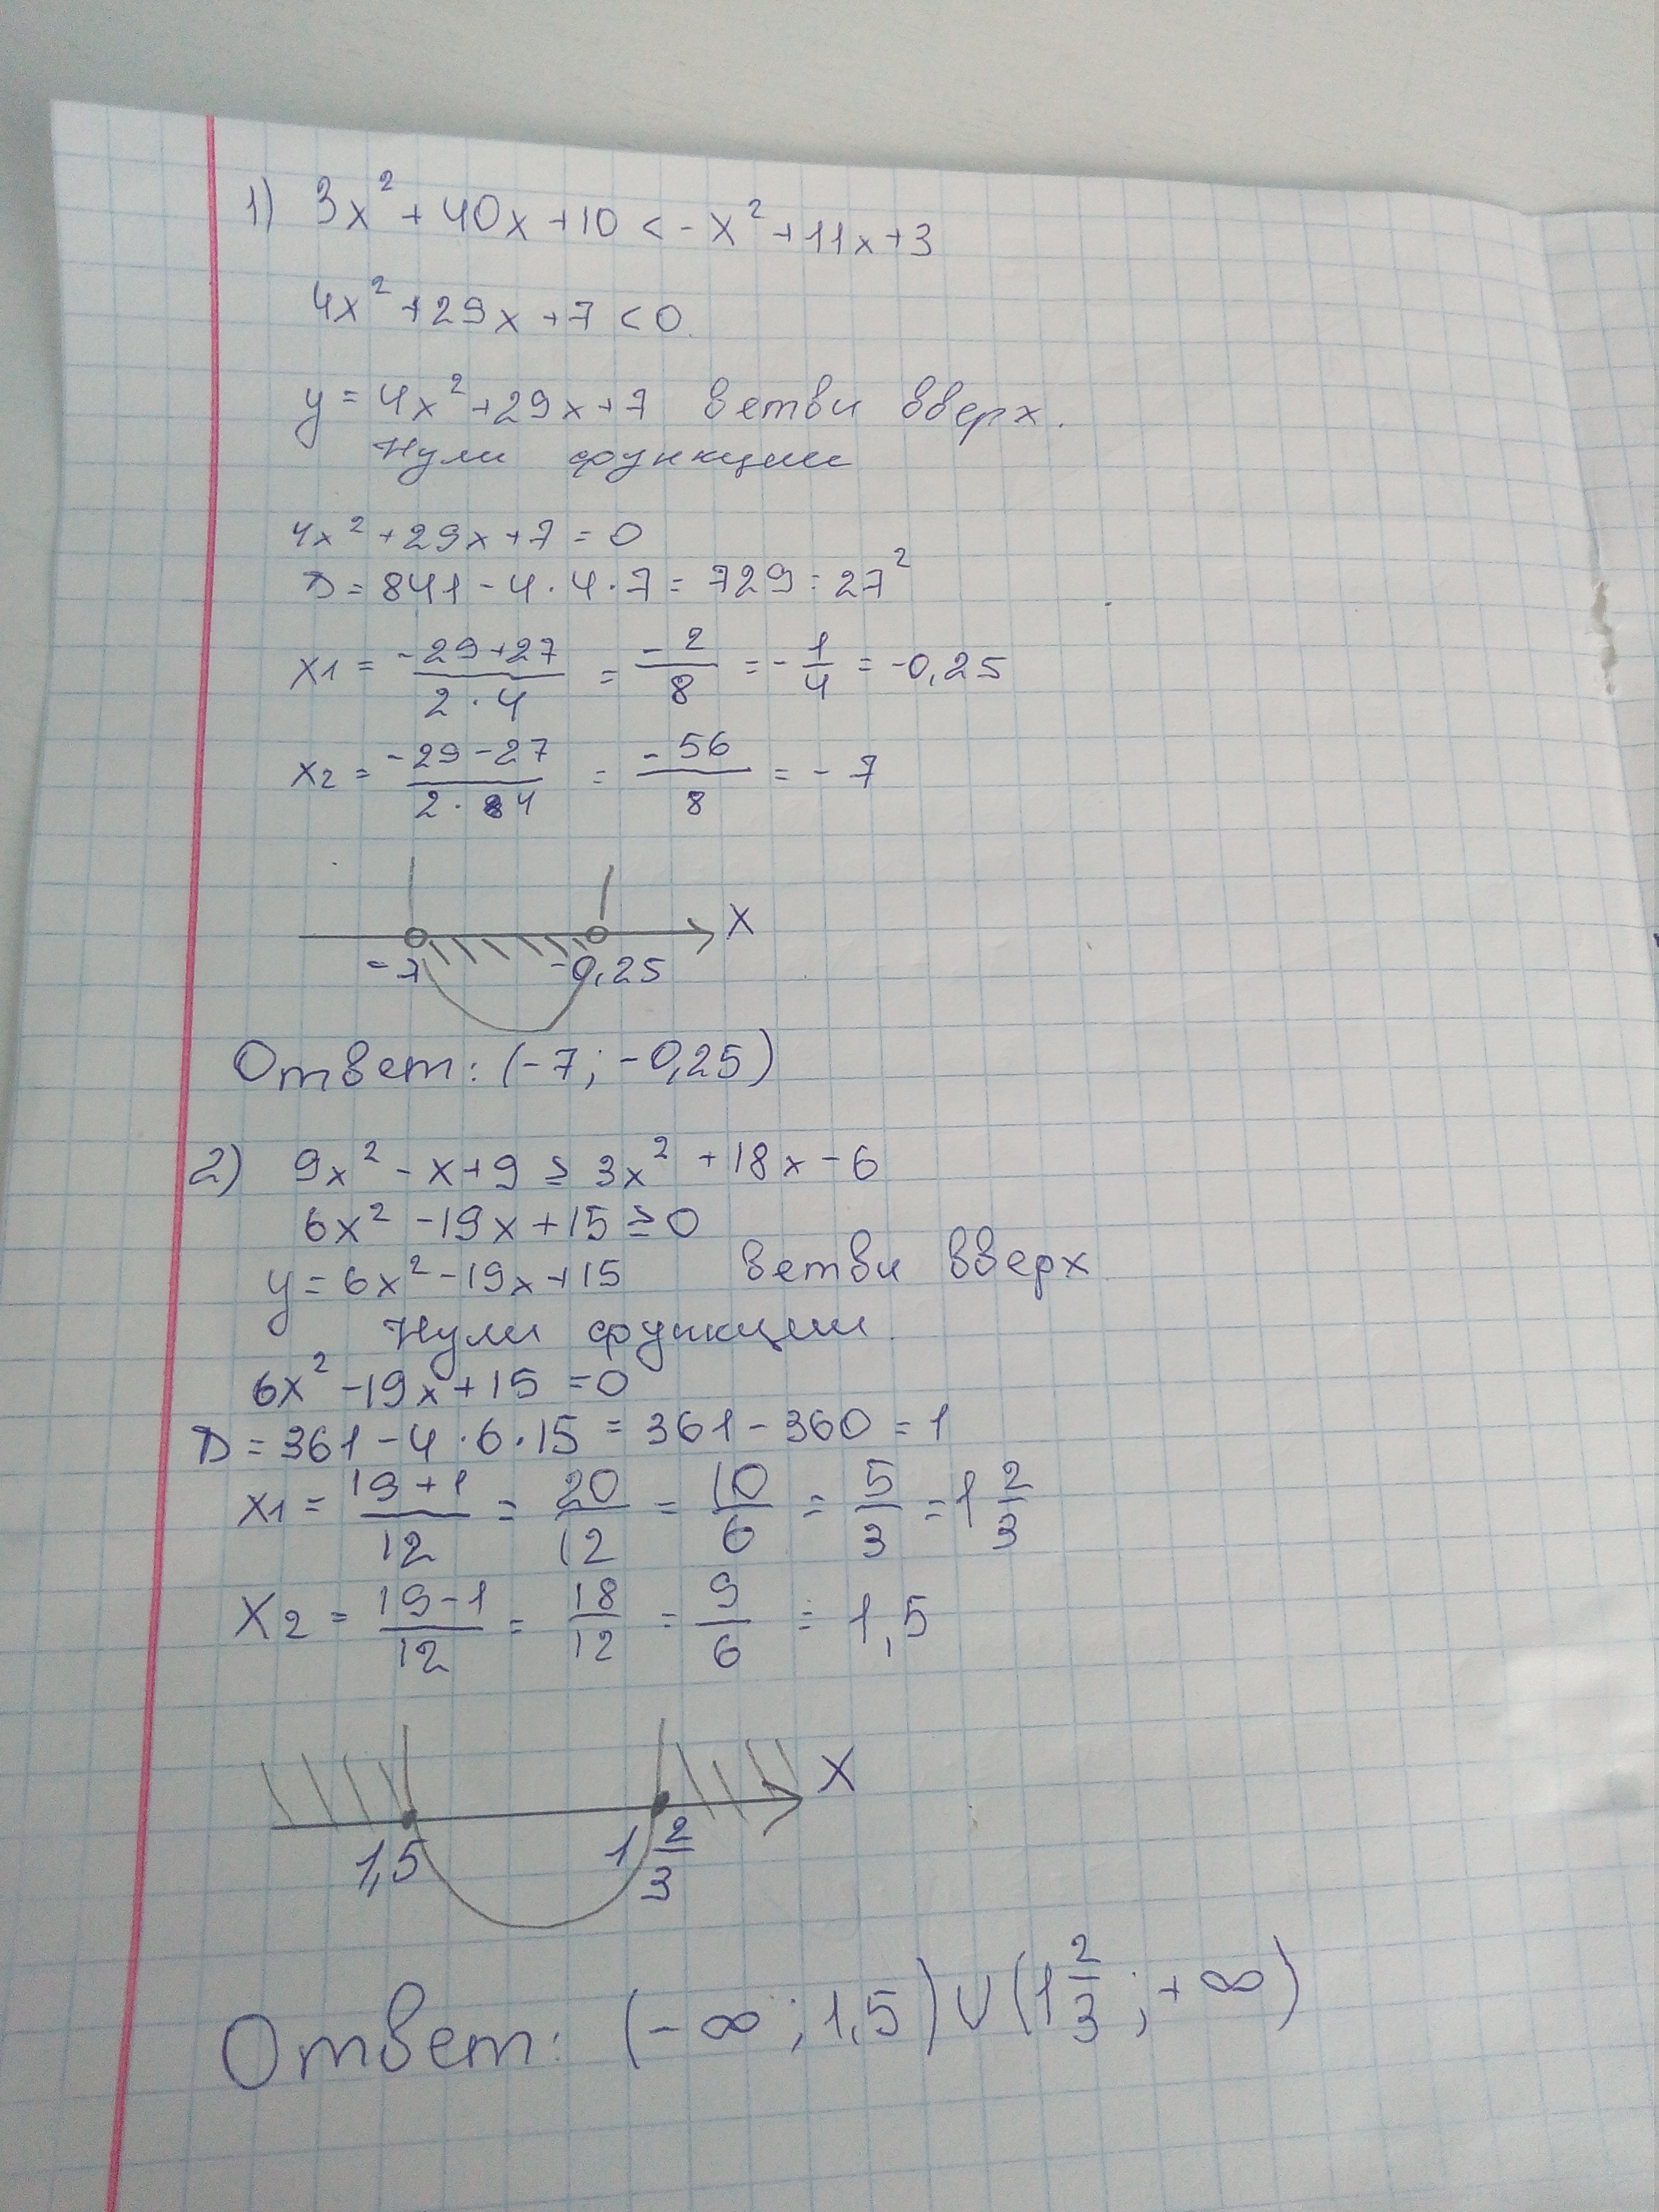 1) 3x² + 40x + 10 < -x² + 11x + 3
4x² + 29x + 7 < 0.
y = 4x² + 29x + 7 ветви вверх.
Нули функции
4x² + 29x + 7 = 0
D = 841 - 4 · 4 · 7 = 729 = 27²
x1 = (-29+27)/(2 · 4) = -2/8 = -1/4 = -0,25
x2 = (-29-27)/(2 · 4) = -56/8 = -7
x
-7 -0,25
Ответ: (-7; -0,25)
2) 9x² - x + 9 ≥ 3x² + 18x - 6
6x² - 19x + 15 ≥ 0
y = 6x² - 19x + 15 ветви вверх
Нули функции.
6x² - 19x + 15 = 0
D = 361 - 4 · 6 · 15 = 361 - 360 = 1
x1 = (19+1)/12 = 20/12 = 10/6 = 5/3 = 1 2/3
x2 = (19-1)/12 = 18/12 = 9/6 = 1,5
x
1,5 1 2/3
Ответ: (-∞; 1,5) ∪ (1 2/3; +∞)